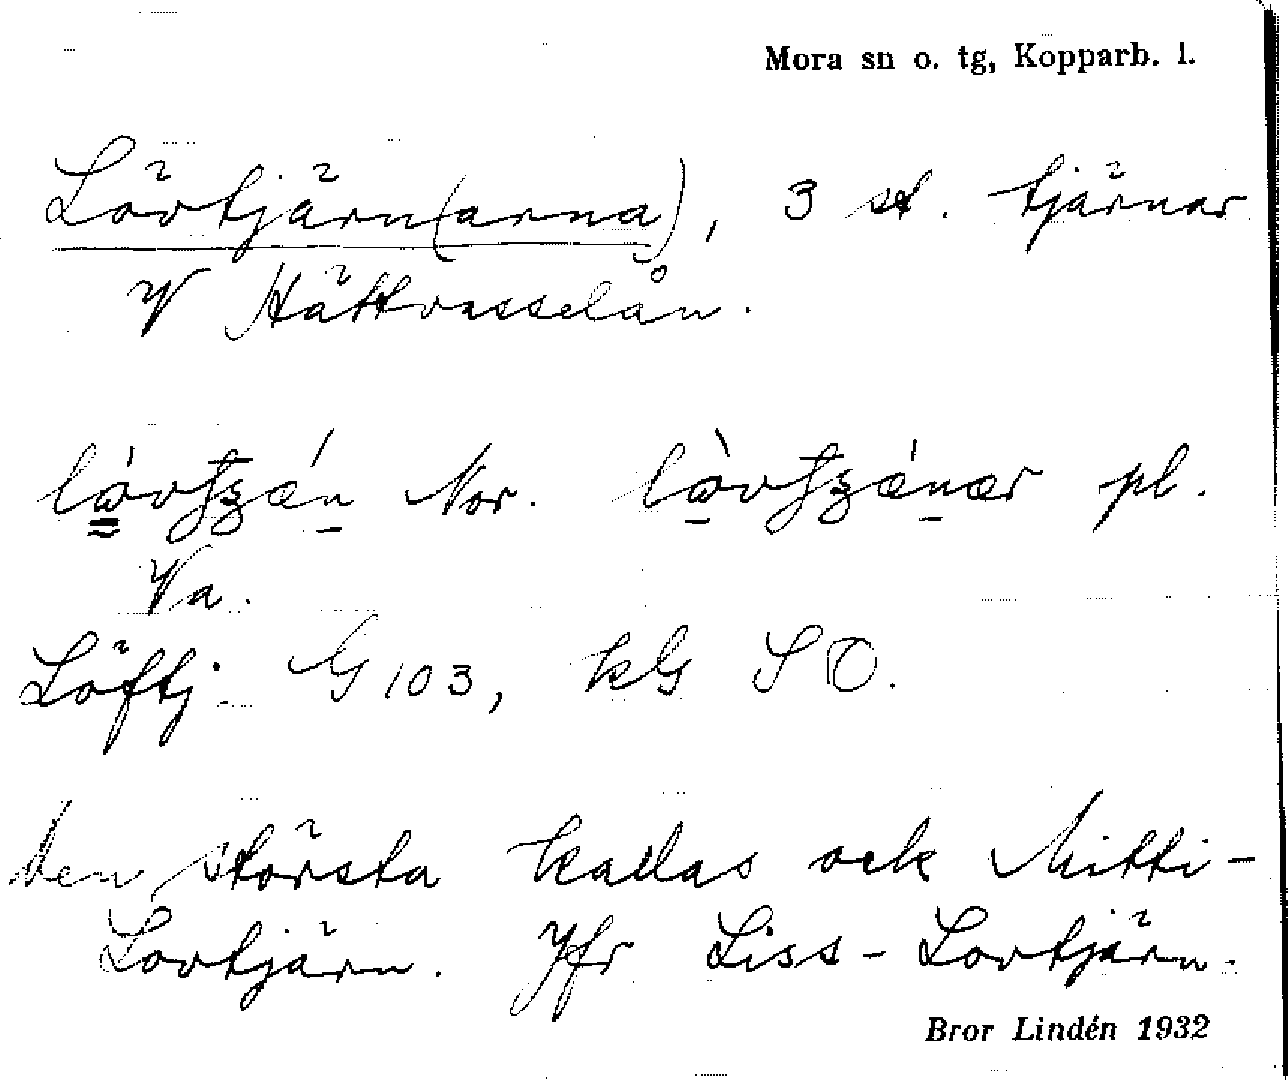 Mora sn o. tg, Kopparb. l.
Lövtjärn(arna), 3 st. tjärnar
V Hättvasselån.
Nor. pl.
Va.
Löftj. G 103, kG SO.
den största kallas ock Mitti-
Lovtjärn. Jfr Liss-Lovtjärn.
Bror Lindén 1932